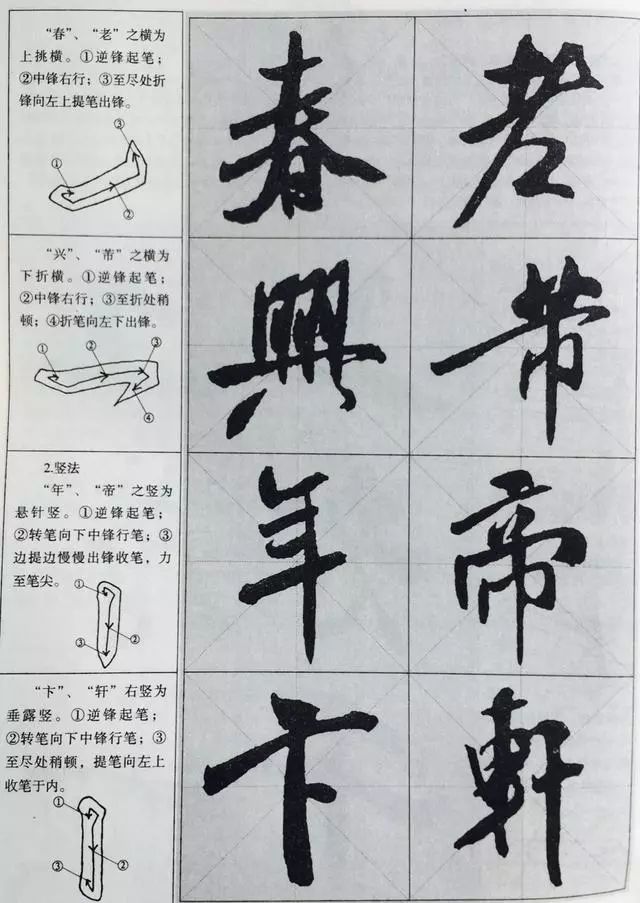 “春”、“老”之横为
上挑横。①逆锋起笔；
②中锋右行；③至尽处折
锋向左上提笔出锋。
③
①
②
春 老
“兴”、“芾”之横为
下折横。①逆锋起笔；
②中锋右行；③至折处稍
顿；④折笔向左下出锋。
① ② ③
④
興 芾
2.竖法
“年”、“帝”之竖为
悬针竖。①逆锋起笔；
②转笔向下中锋行笔；③
边提边慢慢出锋收笔，力
至笔尖。
①
②
③
年 帝
“卞”、“轩”右竖为
垂露竖。①逆锋起笔；
②转笔向下中锋行笔；③
至尽处稍顿，提笔向左上
收笔于内。
①
③ ②
卞 軒